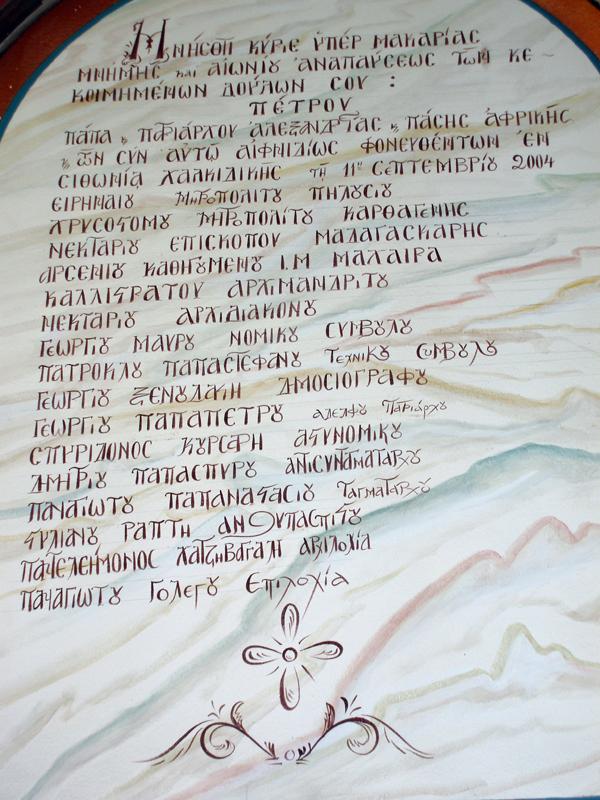 Μνήσθητι κύριε ὑπέρ μακαρίας
μνήμης και αἰωνίου ἀναπαύσεως τῶν κε~
κοιμημένων δούλων σου :
πέτρου
πάπα κ πατριάρχου ἀλεξανδρείας κ πάσης ἀφρικῆς
κ τῶν σύν αὐτῶ αἰφνιδίως φονευθέντων ἐν
σιθωνία χαλκιδικῆς τῇ 11ῃ σεπτεμβρίου 2004
ειρηναίου μητροπολίτου πηλουσίου
χρυσοστομου μητροπολίτου καρθαγενης
νεκταριου επισκοπου μαδαγασκαρης
αρσενιου καθηγουμενου ι.μ μαχαιρα
καλλιστρατου αρχιμανδριτου
νεκταριου αρχιδιακονου
γεωργιου μαυρου νομικου συμβουλου
πατροκλου παπαστεφανου τεχνικου συμβουλου
γεωργιου ξενουδακη δημοσιογραφου
γεωργιου παπαπετρου αδελφου πατριάρχου
σπυριδονος κυρσαφη αστυνομικου
δημητριου παπασπυρου αντισυνταματαρχου
παναγιωτου παπαναστασιου ταγματαρχου
στυλιανου ραπτη ανθυπασπιστου
παντελεήμονος χατζηβαγαλη αρχιλοχια
παναγιωτου γολεγου επιλοχία